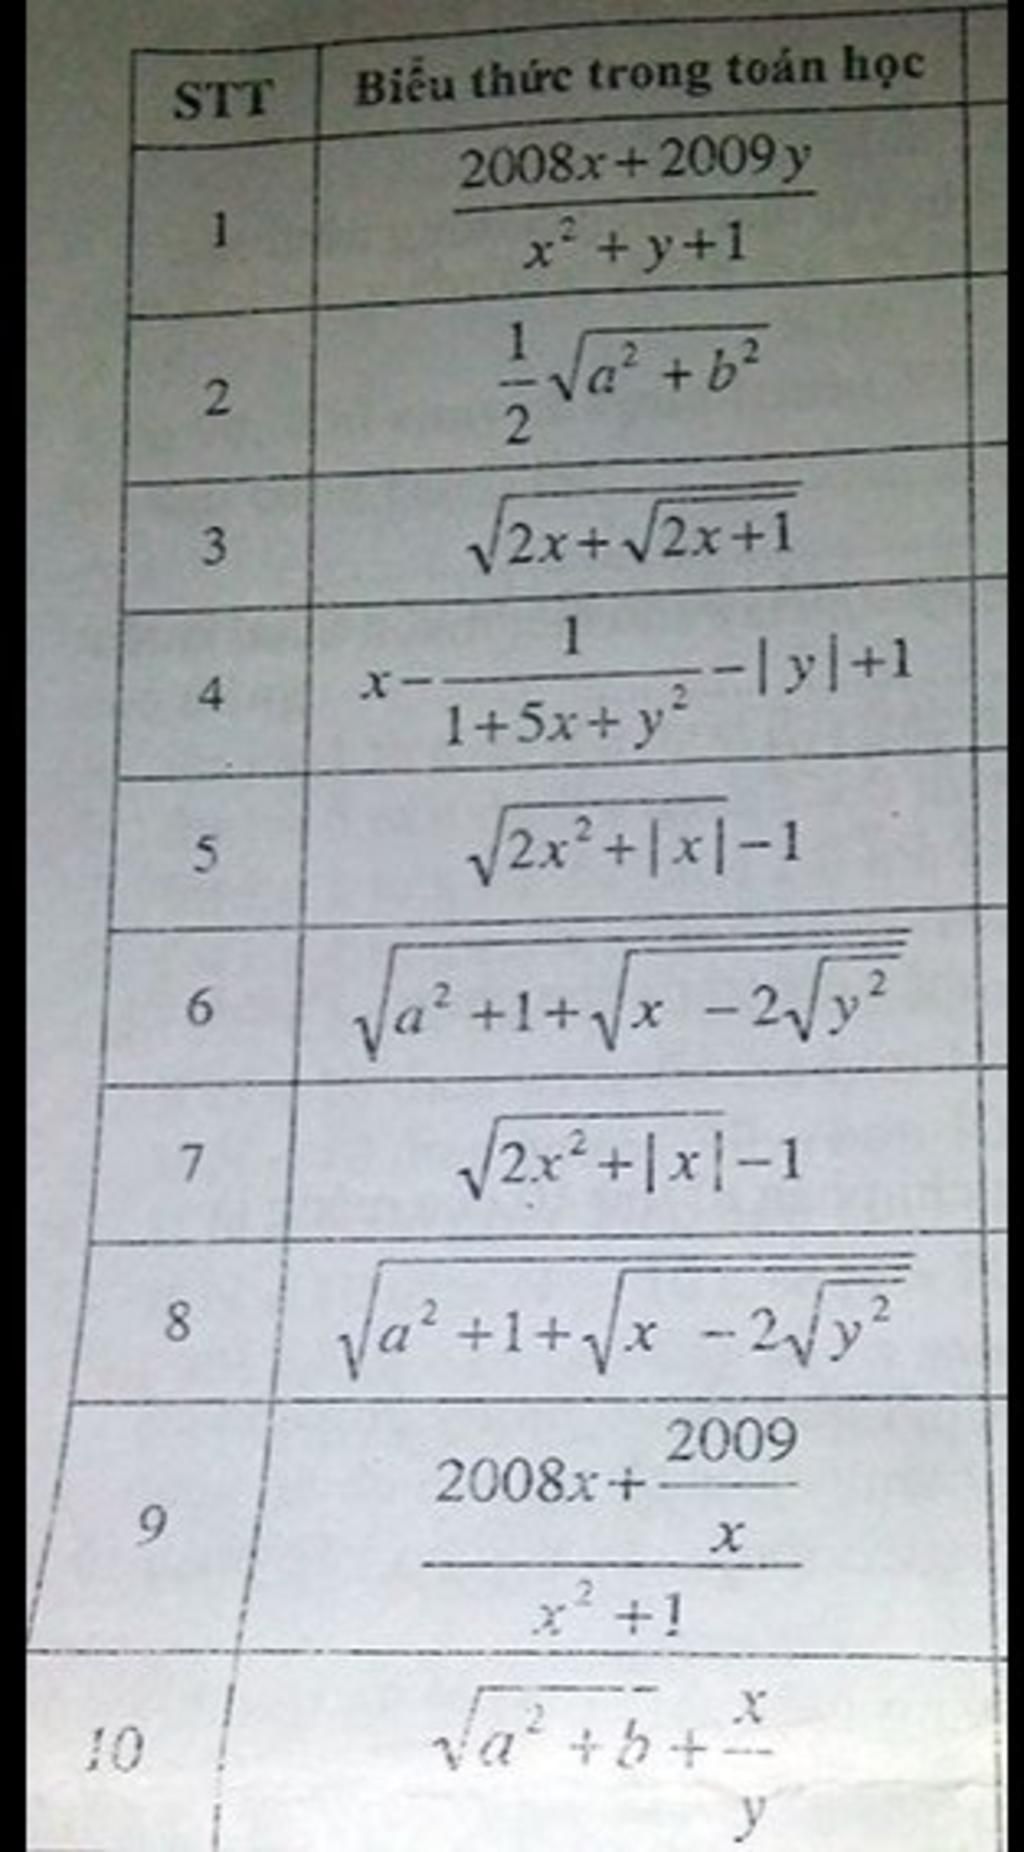 STT Biểu thức trong toán học
1 \frac{2008x+2009y}{x^2+y+1}
2 \frac{1}{2}\sqrt{a^2+b^2}
3 \sqrt{2x+\sqrt{2x+1}}
4 x-\frac{1}{1+5x+y^2}-|y|+1
5 \sqrt{2x^2+|x|}-1
6 \sqrt{a^2+1+\sqrt{x-2\sqrt{y^2}}}
7 \sqrt{2x^2+|x|}-1
8 \sqrt{a^2+1+\sqrt{x-2\sqrt{y^2}}}
9 \frac{2008x+\frac{2009}{x}}{x^2+1}
10 \sqrt{a^2+b}+\frac{x}{y}